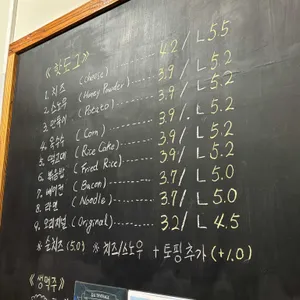 《핫도그》
1. 치즈 (cheese) 4.2 / L 5.5
2. 스노우 (Honey Powder) 3.9 / L 5.2
3. 만득이 (Potato) 3.9 / L 5.2
4. 옥수수 (Corn) 3.9 / L 5.2
5. (Rice Cake) 3.9 / L 5.2
6. 볶음밥 (Fried Rice) 3.9 / L 5.2
7. 베이컨 (Bacon) 3.7 / L 5.0
8. 라면 (Noodle) 3.7 / L 5.0
9. 오리지널 (Original) 3.2 / L 4.5
※ 순치즈 (5.0) ※ 치즈/스노우 + 토핑추가 (+1.0)
《생맥주》